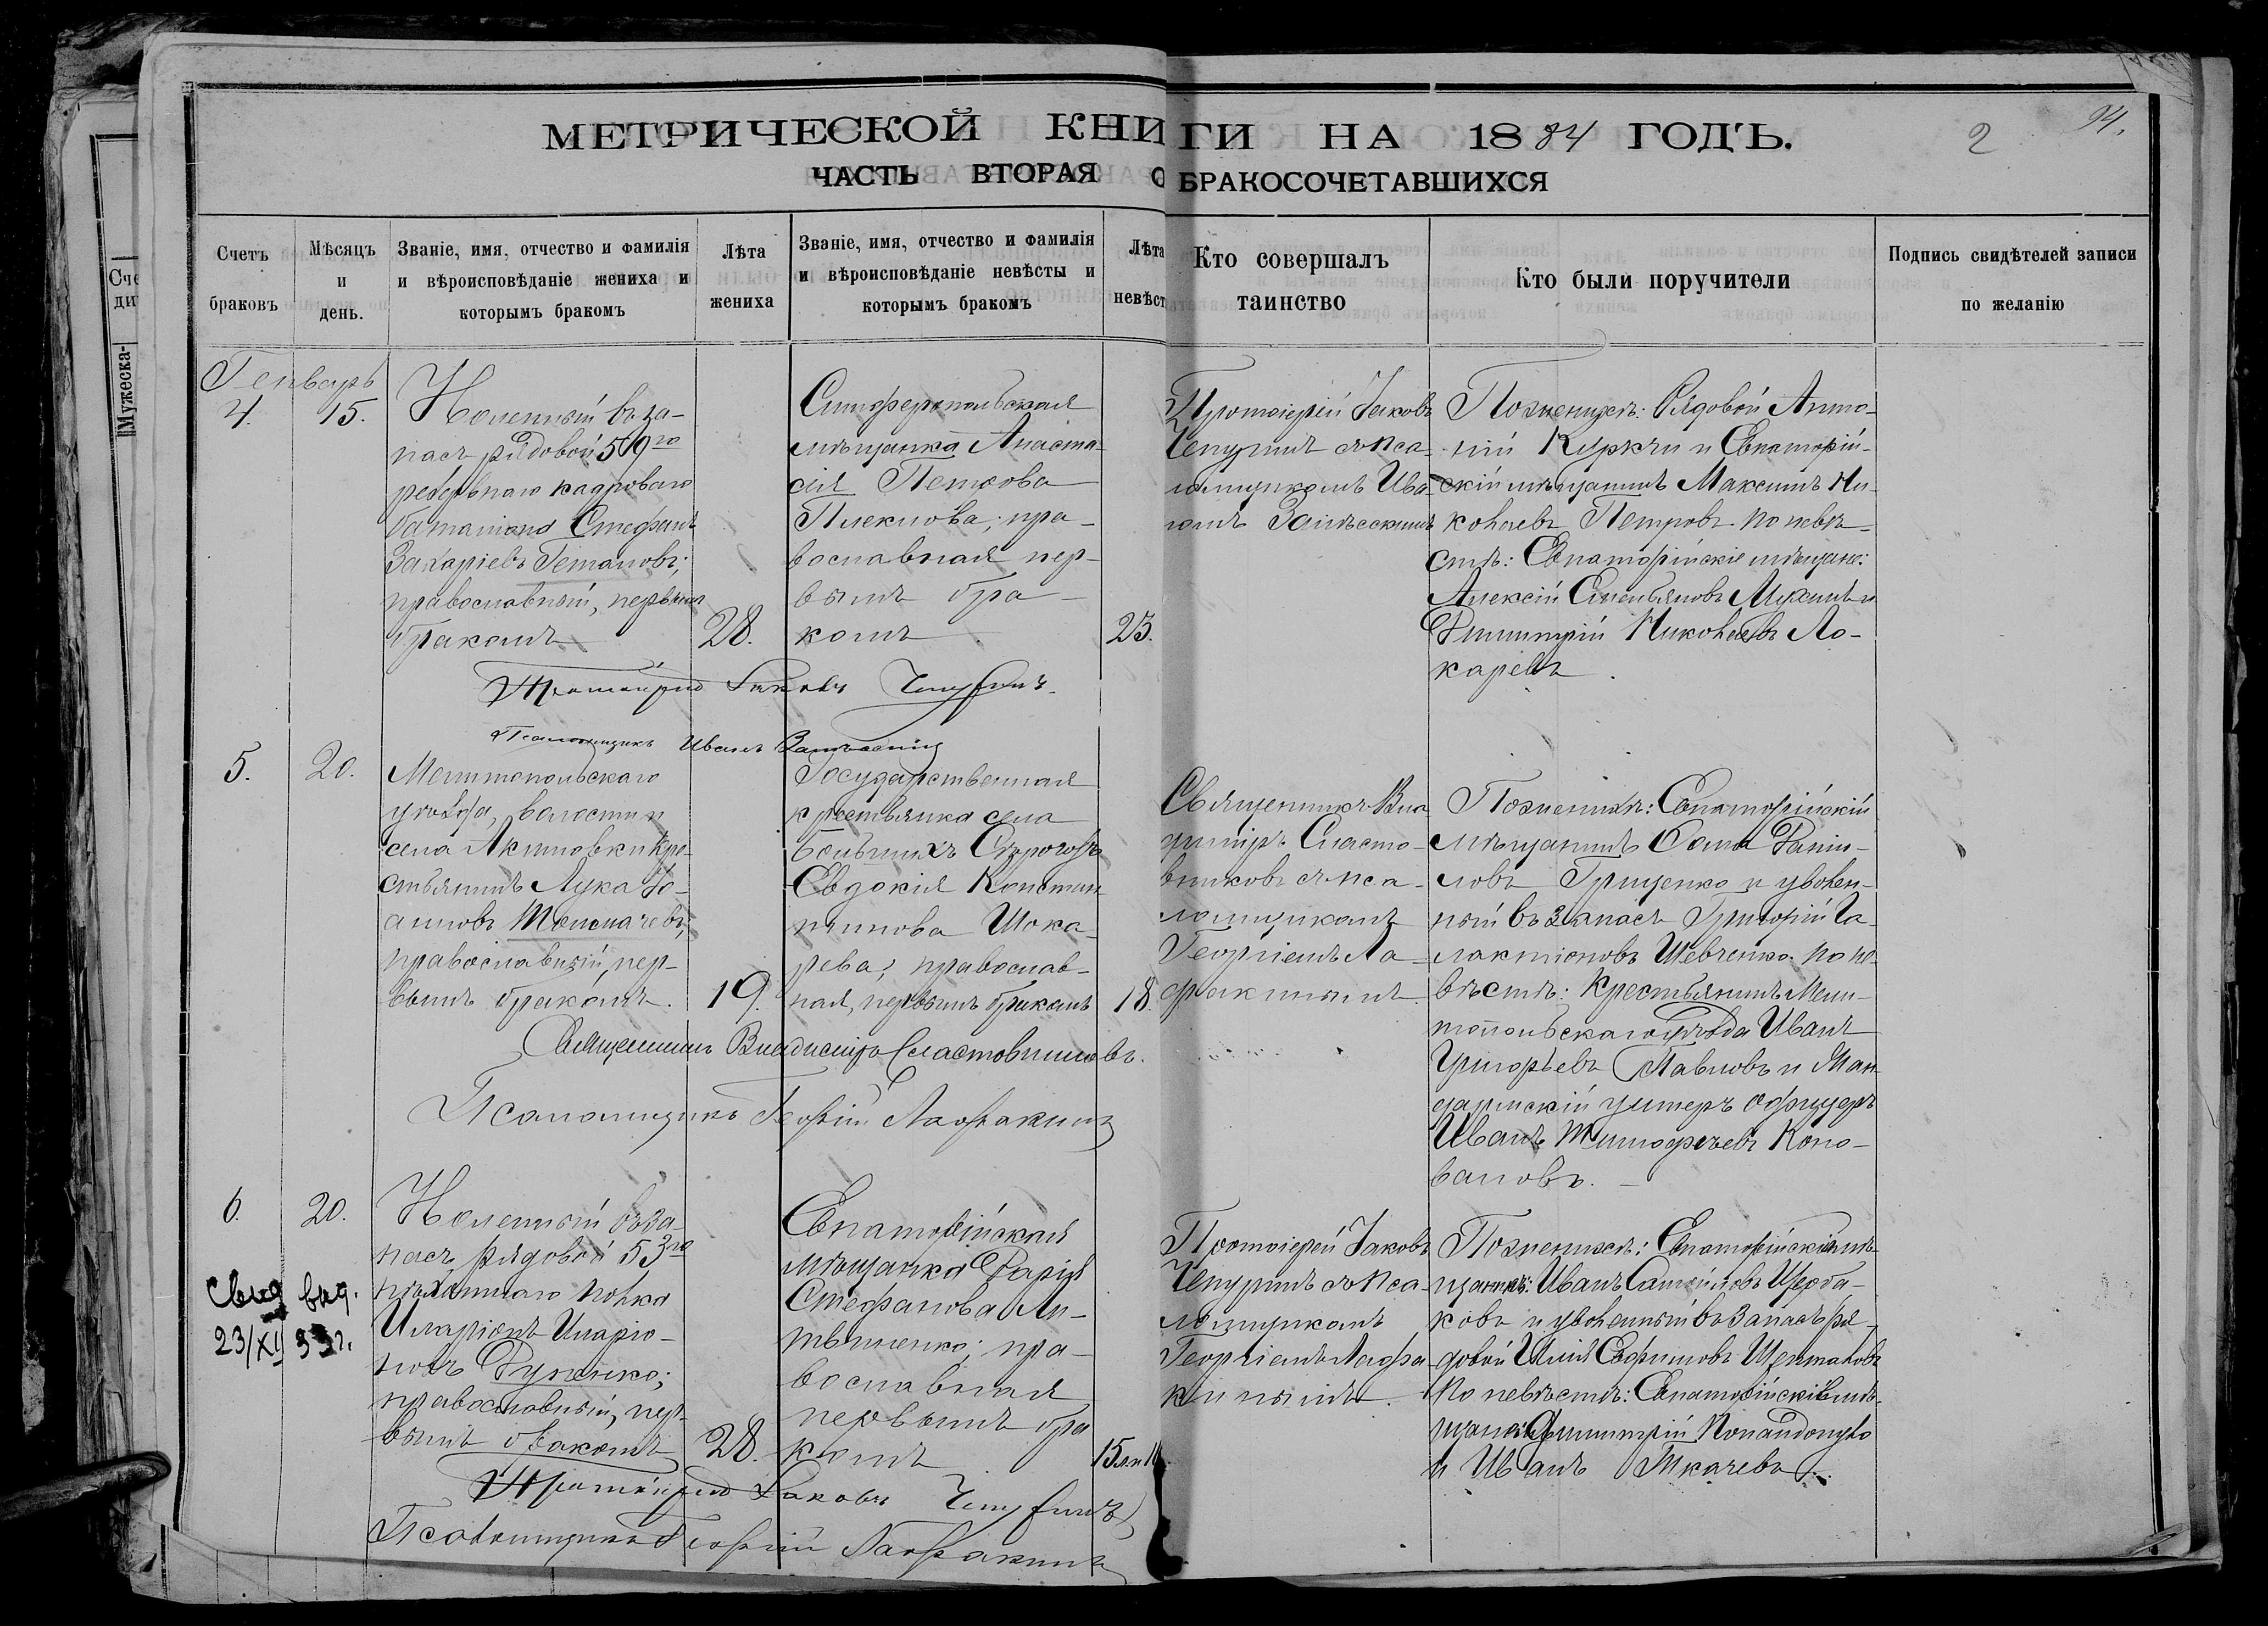 МЕТРИЧЕСКОЙ КНИГИ НА 1884 ГОДЪ.
2
94.
ЧАСТЬ ВТОРАЯ О БРАКОСОЧЕТАВШИХСЯ
Счетъ
браковъ
Мѣсяцъ
и
день.
Званіе, имя, отчество и фамилія
и вѣроисповѣданіе жениха и
которымъ бракомъ
Лѣта
жениха
Званіе, имя, отчество и фамилія
и вѣроисповѣданіе невѣсты и
которымъ бракомъ
Лѣта
невѣст
Кто совершалъ
таинство
Кто были поручители
Подпись свидѣтелей записи
по желанію
Генварь
4.
15.
въ за-
пасъ рядовой
резервнаго кадроваго
баталіона Стефанъ
Захаріевъ Гетмановъ;
православный, первымъ
бракомъ
28.
Симферопольская
мѣщанка Анаста-
сія Петрова
православная пер-
вымъ бра-
комъ
23.
Протоіерей Іаковъ
Чепуринъ съ пса-
ломщикомъ Ива-
номъ
По женихѣ: Рядовой Анто-
ній Куркчи и Евпаторій-
скій мѣщанинъ Максимъ Ни-
колаевъ Петровъ. по невѣ-
стѣ: Евпаторійскіе мѣщане:
Алексій Емельяновъ и
Димитрій Николаевъ Ло-
каревъ
Протоіерей Іаковъ Чепуринъ.
Псаломщикъ Иванъ
5.
20.
Мелитопольскаго
уѣзда, волости и
села Акимовки кре-
стьянинъ Лука Іо-
анновъ Толмачевъ,
православный, пер-
вымъ бракомъ.
19.
Государственная
крестьянка села
Евдокія Констан-
тинова Шока-
рева; православ-
ная, первымъ бракомъ
18.
Священникъ Вла-
диміръ Сласто-
вниковъ съ пса-
ломщикомъ
Георгіемъ Ла-
факинымъ
По женихѣ: Евпаторійскій
мѣщанинъ Дани-
ловъ Гриценко и уволен-
ный въ запасъ Григорій Га-
лактіоновъ Шевченко. по не-
вѣстѣ: Крестьянинъ Мели-
топольскаго уѣзда Иванъ
Григорьевъ Павловъ и Жан-
дармскій унтеръ офицеръ
Иванъ Тимофеевъ Коно-
валовъ.
Священникъ Владиміръ Сластовниковъ.
Псаломщикъ Георгій Лафакинъ
6.
20.
въ за-
пасъ рядовой 53го
пѣхотнаго полка
Иларіонъ Иларіо-
новъ Руденко;
православный, пер-
вымъ бракомъ
28.
Свид выд.
23/XII 33г.
Евпаторійская
мѣщанка Дарія
Стефанова Ли-
твиненко; пра-
вославная
первымъ бра
комъ
15
Протоіерей Іаковъ
Чепуринъ съ пса-
ломщикомъ
Георгіемъ Лафа-
кинымъ.
По женихѣ: Евпаторійскій мѣ-
щанинъ: Иванъ Щерба-
ковъ и уволенный въ запасъ ря-
довой Илія Евфимовъ
По невѣстѣ: Евпаторійскіе мѣ-
щане: Димитрій Попандопуло
и Иванъ Ткачевъ.
Протоіерей Іаковъ Чепуринъ
Псаломщикъ Георгій Лафакинъ
Сче
ди
Мужеска-